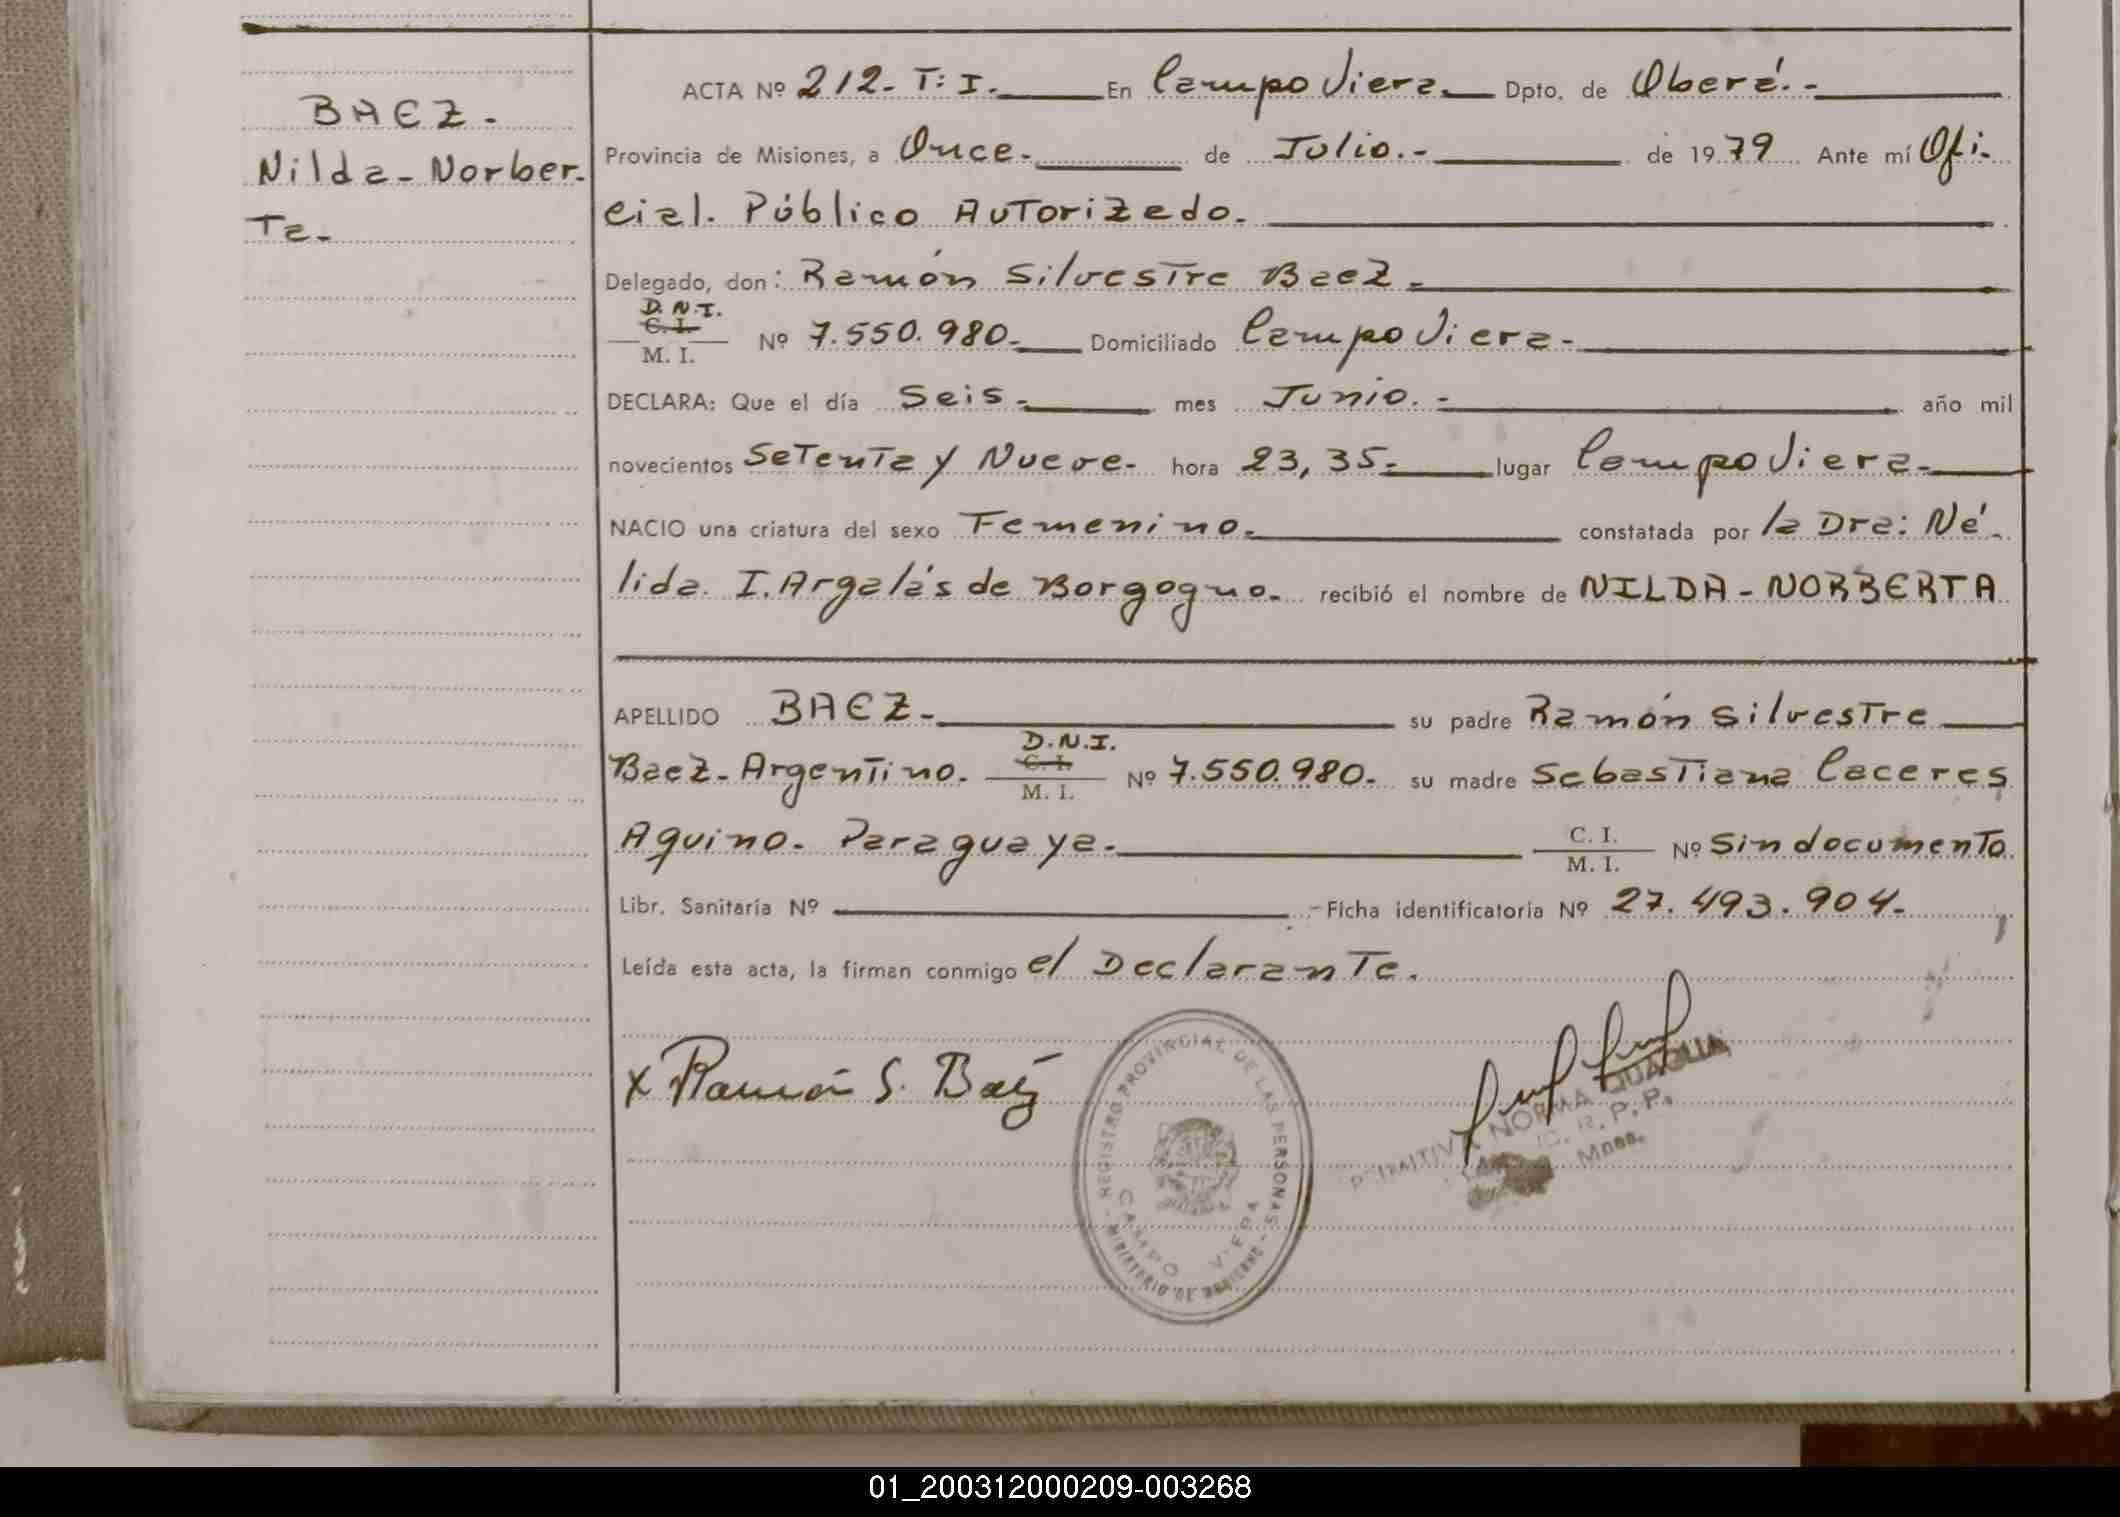 BAEZ.
Nilda-Norber-
Ta.
ACTA Nº 212. T: I. En Campo Viera. Dpto. de Oberá.-
Provincia de Misiones, a Once. de Julio.- de 1979 Ante mí Ofi-
cial. Público Autorizado.
Delegado, don: Ramón Silvestre Baez.
D.N.I.
C. I.
M. I. Nº 7.550.980. Domiciliado Campo Viera.
DECLARA: Que el día Seis. mes Junio.- año mil
novecientos Setenta y Nueve. hora 23,35. lugar Campo Viera.
NACIO una criatura del sexo Femenino. constatada por la Dra: Né-
lida. I. Argalás de Borgogno. recibió el nombre de NILDA-NORBERTA
APELLIDO BAEZ. su padre Ramón Silvestre
D.N.I.
Baez. Argentino. C. I. M. I. Nº 7.550.980. su madre Sebastiana Caceres
Aquino. Paraguaya. C. I. M. I. Nº Sin documento
Libr. Sanitaria Nº Ficha identificatoria Nº 27.493.904.
Leída esta acta, la firman conmigo el Declarante.
x Ramón S. Baéz
REGISTRO PROVINCIAL DE LAS PERSONAS
MINISTERIO DE GOBIERNO
CAMPO VIERA
PRIMITIVA NORMA QUAGLIA
R. P. P.
Mnes.
01_200312000209-003268